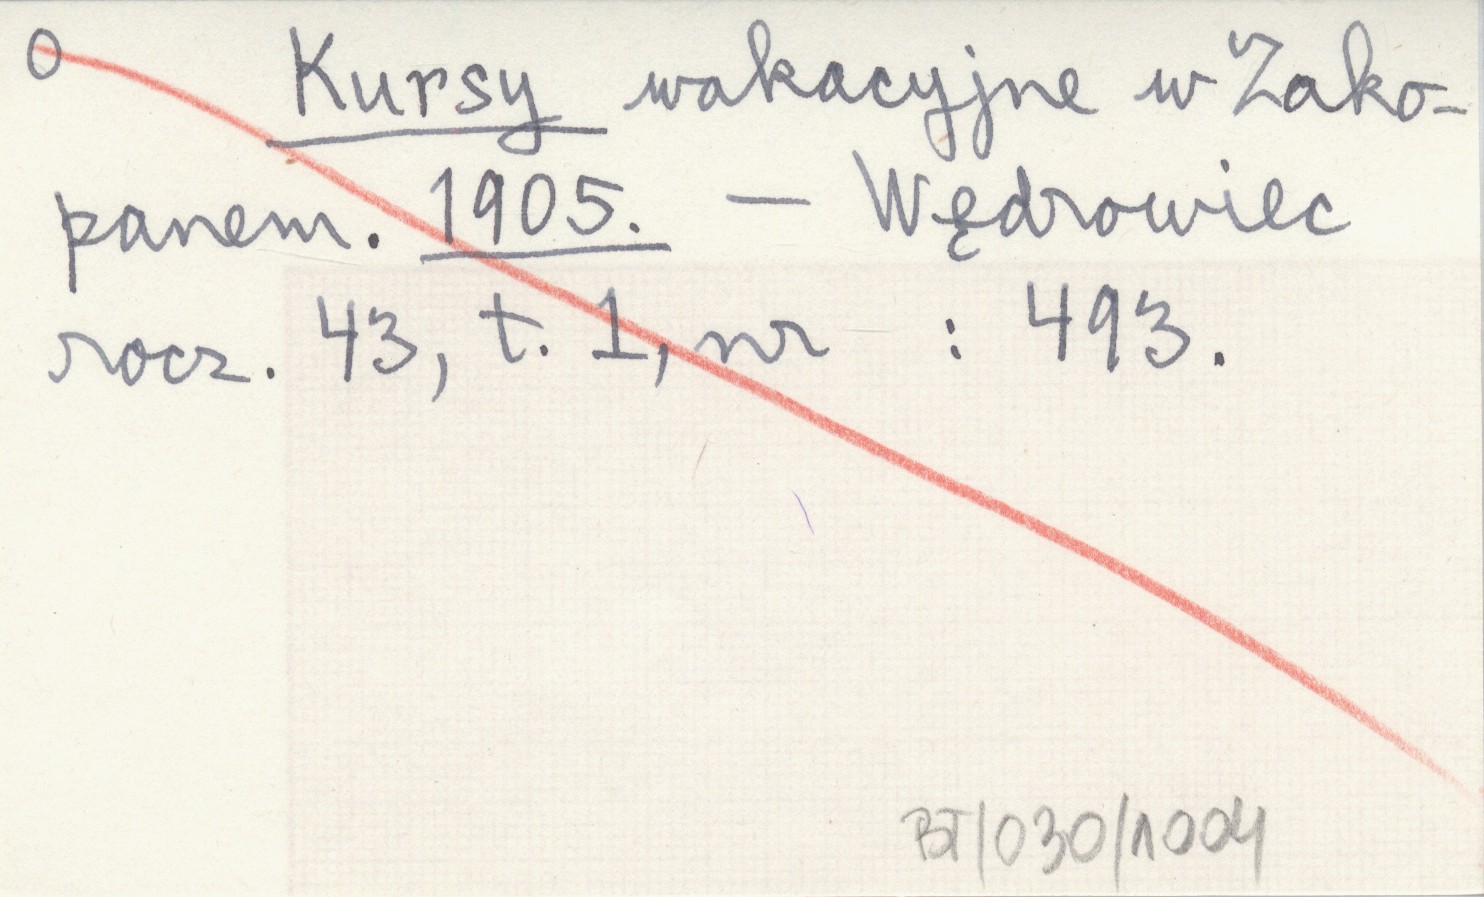 0 Kursy wakacyjne w Zako-
panem. 1905. — Wędrowiec
rocz. 43, t. 1, nr : 493.
BT/030/1004